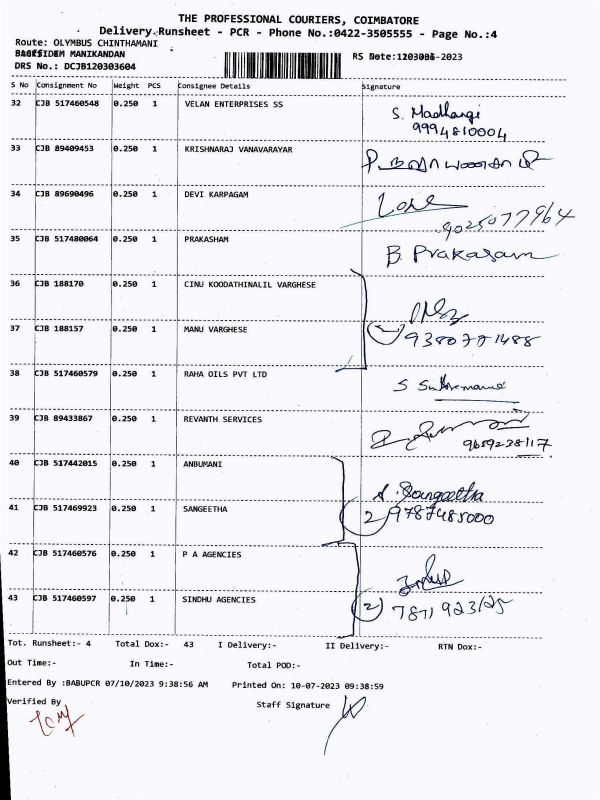 THE PROFESSIONAL COURIERS, COIMBATORE
Delivery Runsheet - PCR - Phone No.:0422-3505555 - Page No.:4
Route: OLYMBUS CHINTHAMANI
MANIKANDAN
DRS No.: DCJB120303604
RS Note: -2023
S No Consignment No Weight PCS Consignee Details Signature
32 CJB 517460548 0.250 1 VELAN ENTERPRISES SS S. Madhangi
9994810004
33 CJB 89409453 0.250 1 KRISHNARAJ VANAVARAYAR
34 CJB 89690496 0.250 1 DEVI KARPAGAM
9025077964
35 CJB 517480064 0.250 1 PRAKASHAM B. Prakasam
36 CJB 188170 0.250 1 CINU KOODATHINALIL VARGHESE
37 CJB 188157 0.250 1 MANU VARGHESE 2 9380771488
38 CJB 517460579 0.250 1 RAHA OILS PVT LTD
39 CJB 89433867 0.250 1 REVANTH SERVICES
9659238117
40 CJB 517442015 0.250 1 ANBUMANI
41 CJB 517469923 0.250 1 SANGEETHA A. Sangeetha
2 9787485000
42 CJB 517460576 0.250 1 P A AGENCIES
43 CJB 517460597 0.250 1 SINDHU AGENCIES 2 7871923125
Tot. Runsheet:- 4 Total Dox:- 43 I Delivery:- II Delivery:- RTN Dox:-
Out Time:- In Time:- Total POD:-
Entered By :BABUPCR 07/10/2023 9:38:56 AM Printed On: 10-07-2023 09:38:59
Verified By Staff Signature